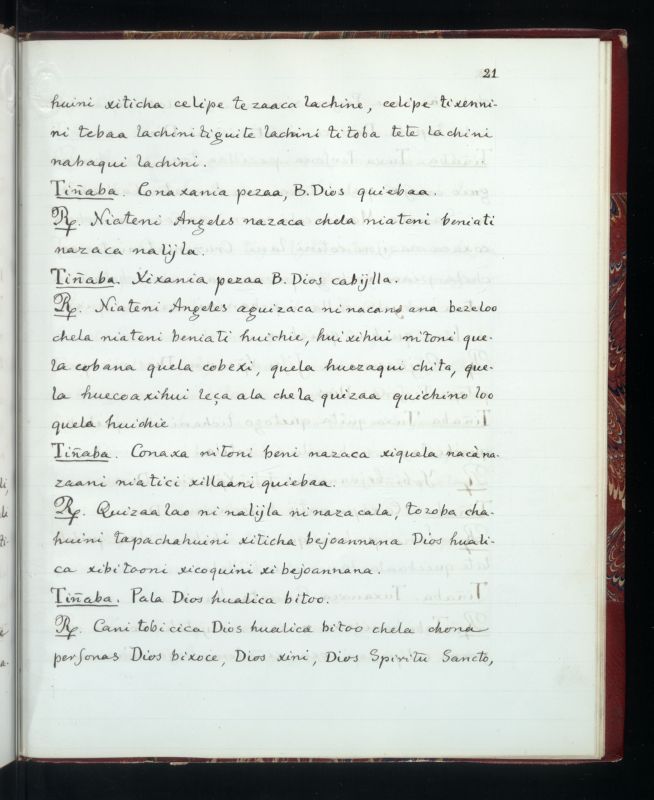 21
huini xiticha celipe te zaaca lachine, celipe tixenni-
ni tebaa lachini tiguite lachini titoba tete lachini
nabaqui lachini.
Tiñaba. Conaxania pezaa, B. Dios quiebaa.
R. Niateni Angeles nazaca chela niateni beniati
nazaca nalijla.
Tiñaba. Xixania pezaa B. Dios cabijlla.
R. Niateni Angeles aguizaca ni nacana ana bezeloo
chela niateni beniati huichie, huixihui nitoni que-
la cobana quela cobexi, quela huezaqui chita, que-
la huecoaxihui leça ala chela quizaa quichino loo
quela huichie
Tiñaba. Conaxa nitoni beni nazaca xiquela nacàna-
zaani niatici xillaani quiebaa.
R. Quizaalao ni nalijla ni nazacala, tozoba cha-
huini tapachahuini xiticha bejoannana Dios huali-
ca xibitaoni xicoquini xi bejoannana.
Tiñaba. Pala Dios hualica bitoo.
R. Cani tobicica Dios hualica bitoo chela chona
personas Dios bixoce, Dios xini, Dios Spiritu Sancto,